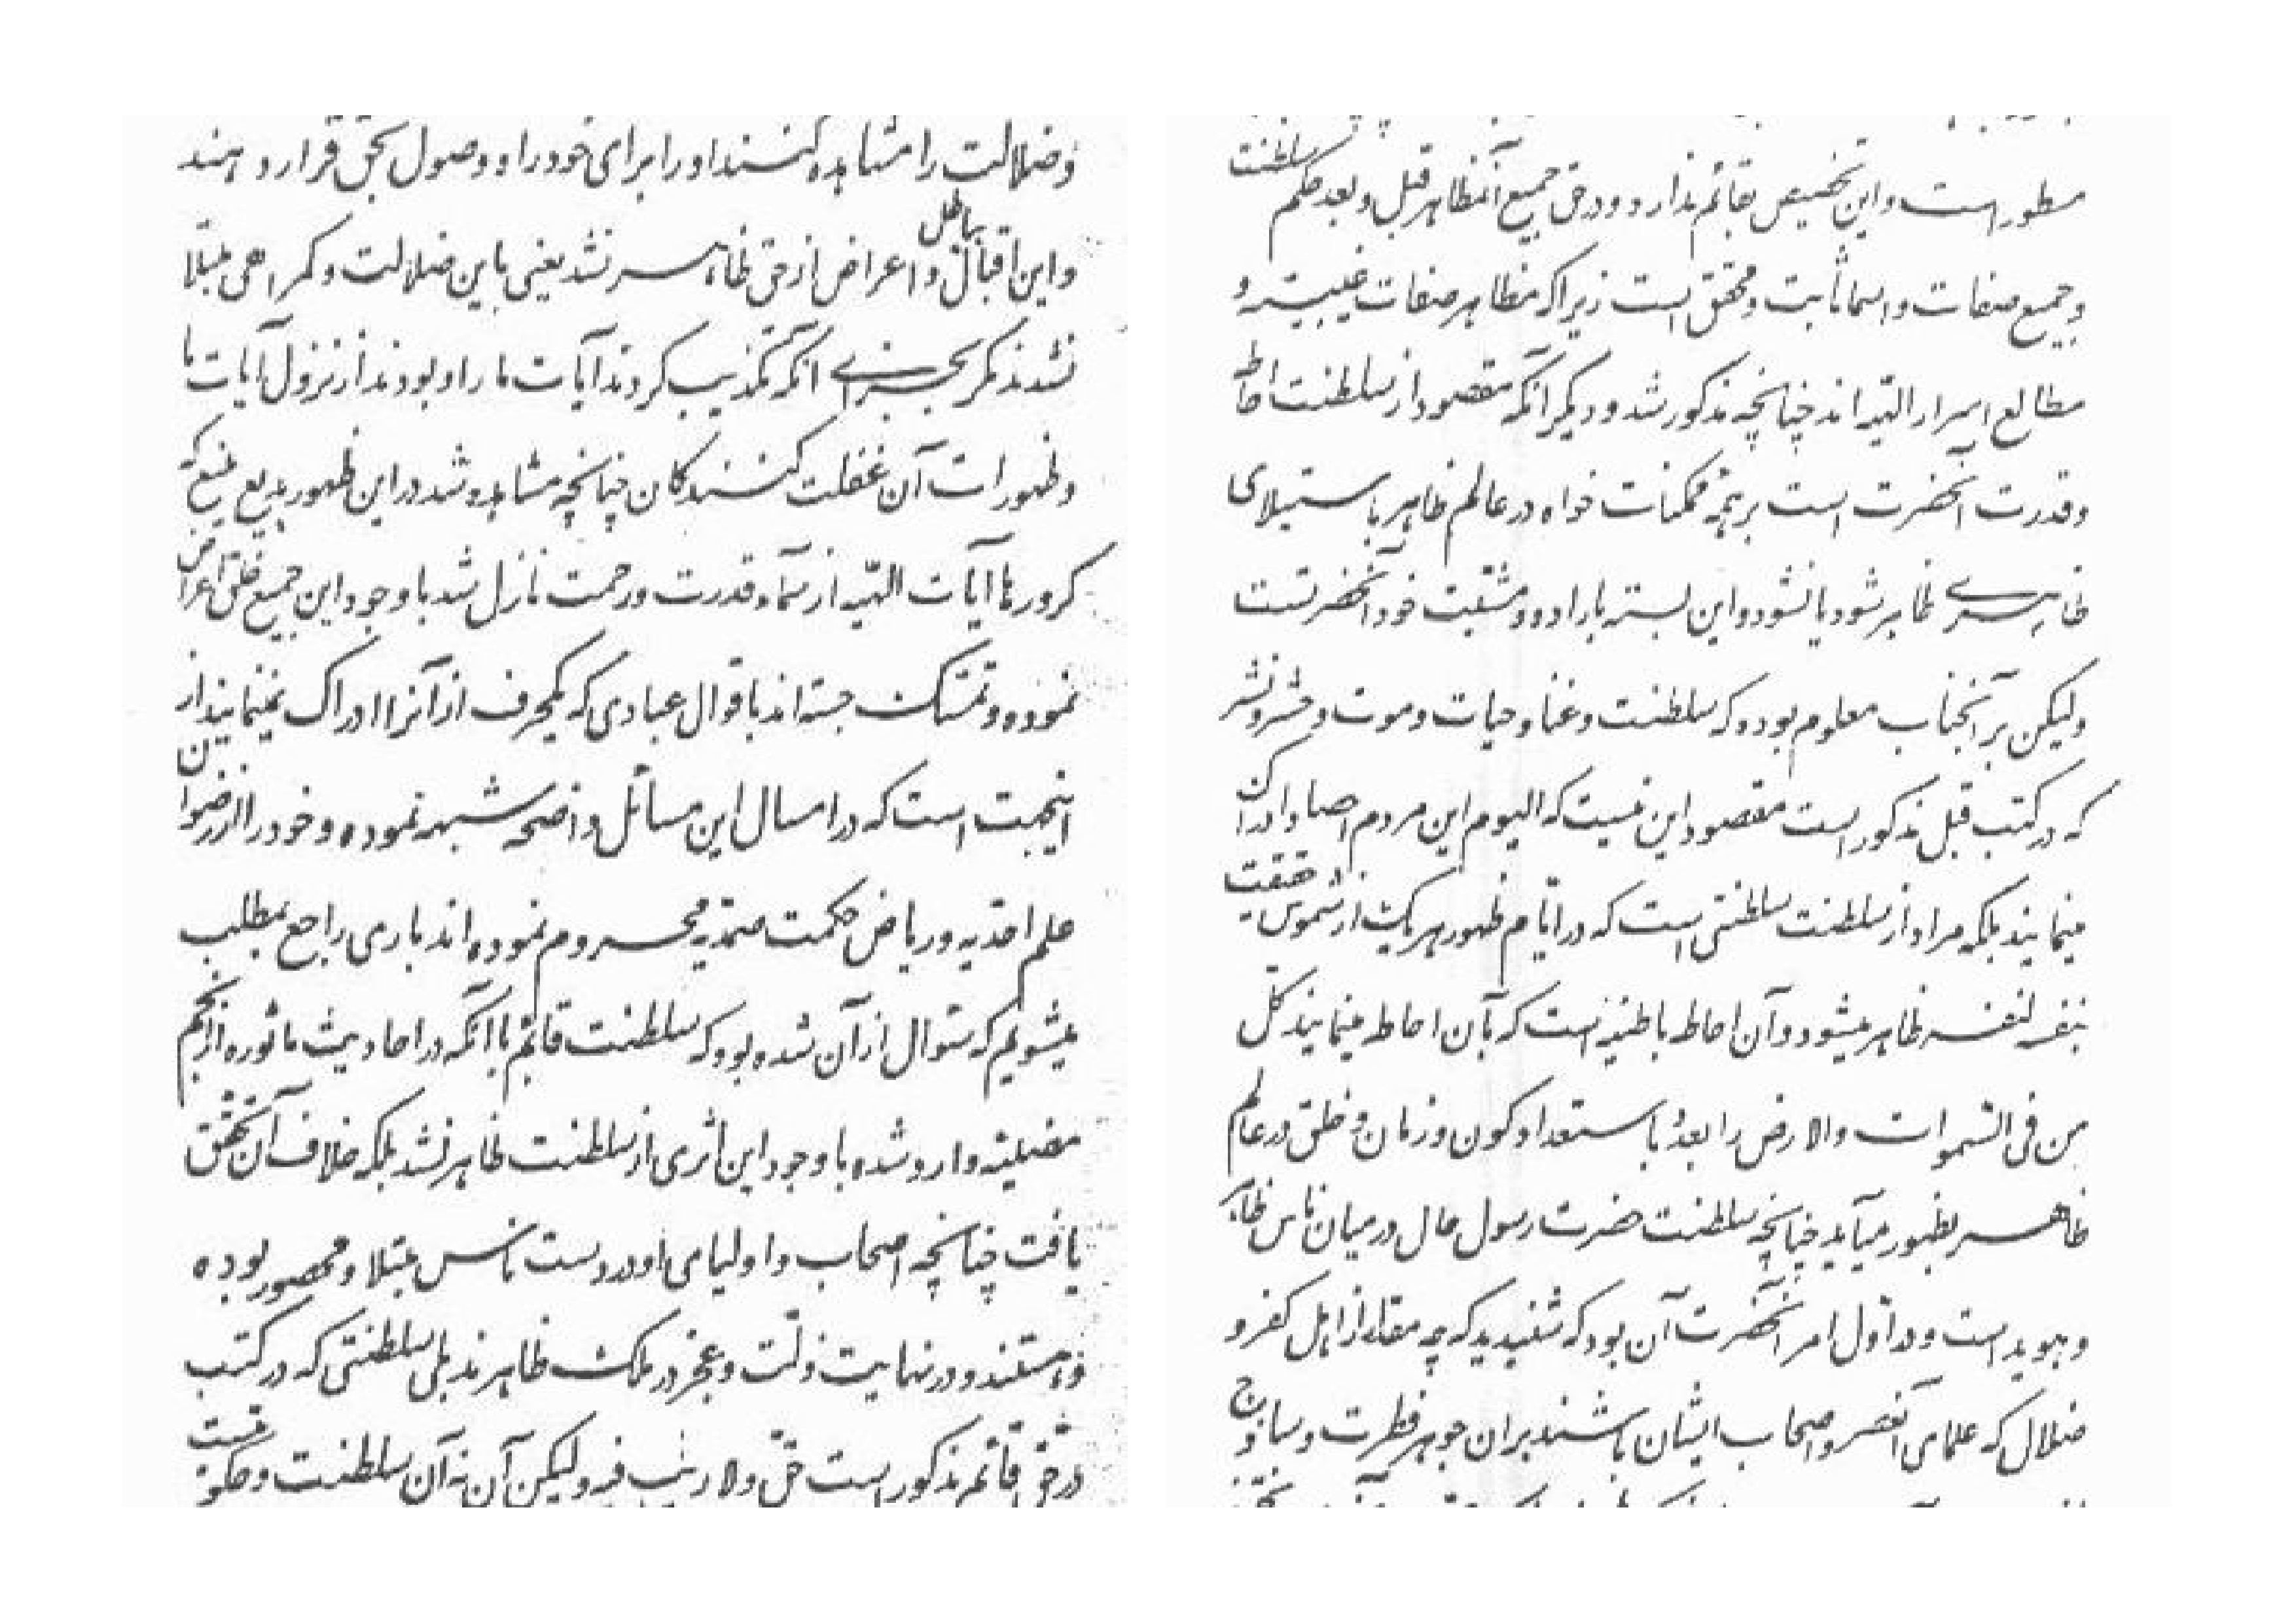 وضلالت را مشاهده کنند او را برای خود راه وصول بحق قرار دهند
و این اقبال بباطل و اعراض از حق ظاهر نشد یعنی باین ضلالت و گمراهی مبتلا
نشدند مگر بجزای آنکه تکذیب کردند آیات ما را و بودند از نزول آیات ما
و ظهورات آن غفلت کنندگان چنانچه مشاهده شد در این ظهور بدیع منیع که
کرورها آیات الهیه از سماء قدرت و رحمت نازل شد با وجود این جمیع خلق اعراض
نموده و تمسّک جسته‌اند باقوال عبادی که یکحرف از آنرا ادراک نمینمایند از
اینجهت است که در امسال این مسائل واضحه شبهه نموده و خود را از رضوان
علم احدیه و ریاض حکمت صمدیه محروم نموده‌اند باری راجع بمطلب
میشویم که سئوال از آن شده بود که سلطنت قائم با آنکه در احادیث ماثوره از انجم
مضیئه وارد شده با وجود این اثری از سلطنت ظاهر نشد بلکه خلاف آن تحقّق
یافت چنانچه اصحاب و اولیای او در دست ناس مبتلا و محصور بوده
و هستند و در نهایت ذلّت و عجز در ملک ظاهرند بلی سلطنتی که در کتب
در حق قائم مذکور است حقّ و لا ریب فیه ولیکن آن نه آن سلطنت و حکومتیست
مسطور است و این تخصیص بقائم ندارد و در حق جمیع آنمظاهر قبل و بعد حکم سلطنت
و جمیع صفات و اسما ثابت و محقق است زیرا که مظاهر صفات غیبیّه و
مطالع اسرار الهیّه‌اند چنانچه مذکور شد و دیگر آنکه مقصود از سلطنت احاطه
و قدرت آنحضرت است بر همه ممکنات خواه در عالم ظاهر باستیلای
ظاهری ظاهر شود یا نشود و این بسته باراده و مشیّت خود آنحضرتست
ولیکن بر آنجناب معلوم بوده که سلطنت و غنا و حیات و موت و حشر و نشر
که در کتب قبل مذکور است مقصود این نیست که الیوم این مردم احصا و ادراک
مینمایند بلکه مراد از سلطنت سلطنتی است که در ایّام ظهور هر یک از شموس حقیقت
بنفسه لنفسه ظاهر میشود و آن احاطه باطنیّه است که بآن احاطه مینمایند کل
من فی السّموات والارض را و بعدُ باستعداد کون و زمان و خلق در عالم
ظاهر بظهور میآید چنانچه سلطنت حضرت رسول حال در میان ناس ظاهر
و هویداست و در اوّل امر آنحضرت آن بود که شنیدید که چه مقدار از اهل کفر و
ضلال که علمای آنعصر و اصحاب ایشان باشند بر آن جوهر فطرت و ساذج